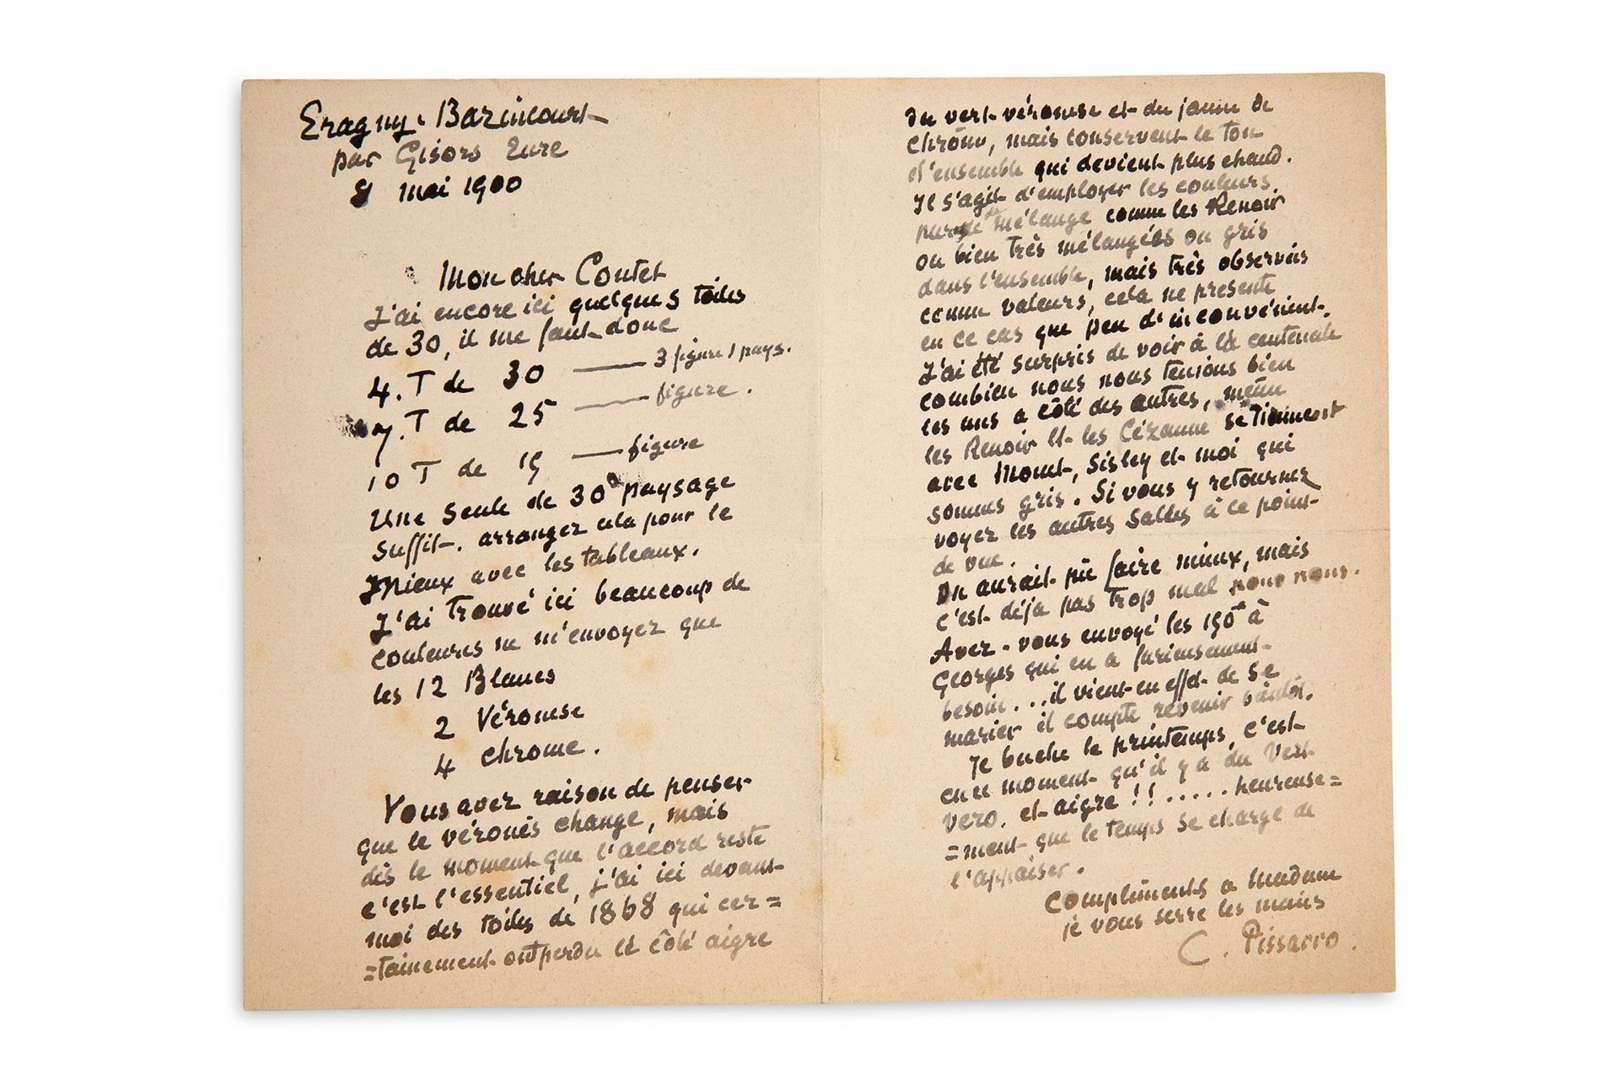 Eragny. Bazincourt
par Gisors Eure
8 mai 1900
Mon cher Contet
J'ai encore ici quelques toiles
de 30, il me faut donc
4. T de 30 —— 3 figure 1 pays.
7. T de 25 —— figure.
10 T de 15 —— figure
Une seule de 30 paysage
suffit. arrangez cela pour le
mieux avec les tableaux.
J'ai trouvé ici beaucoup de
couleurs ne m'envoyez que
les 12 Blancs
2 Véronese
4 chrome.
Vous avez raison de penser
que le véronès change, mais
dès le moment que l'accord reste
c'est l'essentiel, j'ai ici devant
moi des toiles de 1868 qui cer=
=tainement ont perdu le côté aigre
du vert véronese et du jaune de
chrôme, mais conservent le ton
d'ensemble qui devient plus chaud.
Il s'agit d'employer les couleurs
pur de mélange comme les Renoir
ou bien très mélangées ou gris
dans l'ensemble, mais très observés
comme valeurs, cela ne presente
en ce cas que peu d'inconvénient.
J'ai été surpris de voir à la centenale
combien nous nous tenions bien
les uns a côté des autres, même
les Renoir et les Cézanne se tiennent
avec Monet, Sisley et moi qui
sommes gris. Si vous y retournez
voyez les autres salles à ce point
de vue.
On aurait pû faire mieux, mais
c'est déja pas trop mal pour nous.
Avez-vous envoyé les 150f à
Georges qui en a furieusement
besoin... il vient en effet de se
marier il compte revenir bientôt.
Je buche le printemps, c'est
en ce moment qu'il y a du Vert
vero. et aigre!!..... heureuse=
=ment que le temps se charge de
l'appaiser.
Compliments a madame
je vous serre les mains
C. Pissarro.